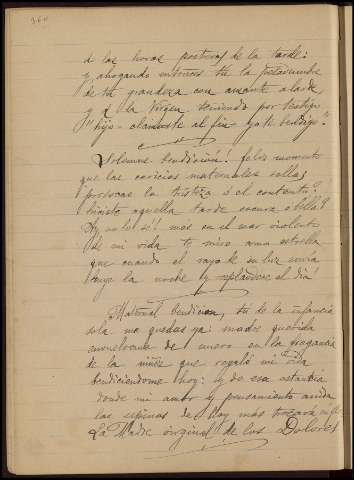 á las horas postreras de la tarde:
y ahogando entonces tu la pesadumbre
de tu grandeza con amante alarde,
y á la Virgen teniendo por testigo
"hijo - clamaste al fin - yo te bendigo."
Solemne bendición! feliz momento
que las caricias maternales sellas,
provocas la tristeza ó el contento?
hiciste aquella tarde oscura ó bella?
Ay no lo sé! mas en el mar violento
de mi vida, te miro una estrella
que cuando el rayo de su luz envia
huye la noche y resplandece el dia!
Maternal bendicion, tu de la infancia
sola me quedas ya: madre querida
en la fragancia
de la niñez que regaló mi vida
bendiciendome hoy: y de esa estancia
donde mi amor y pensamiento anida
las espinas de hoy mas
La Madre original de los Dolores